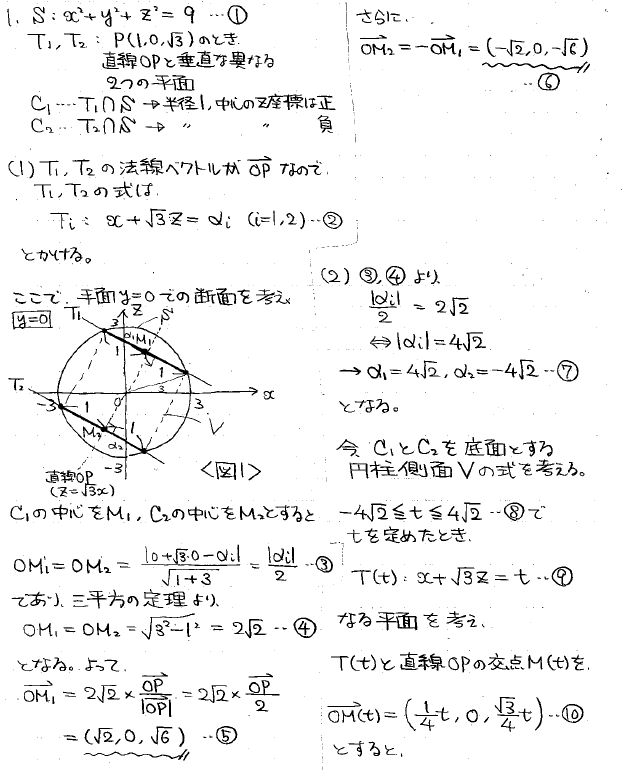 1. S: x²+y²+z²=9 …①
T₁, T₂: P(1,0,√3)のとき
直線OPと垂直な異なる
2つの平面
C₁…T₁∩S → 半径1, 中心のz座標は正
C₂…T₂∩S → 〃 〃 負
(1) T₁, T₂の法線ベクトルが OP→ なので
T₁, T₂の式は
Tᵢ: x+√3z=αᵢ (i=1,2)…②
とかける。
ここで, 平面y=0での断面を考え
y=0
T₁ 3 z S
α₁ M₁
1 1
T₂
-3 1 0 3 3 x
M₂ 1
α₂ V
-3
直線OP
(z=√3x)
<図1>
C₁の中心をM₁, C₂の中心をM₂とすると
OM₁=OM₂= |0+√3・0-αᵢ| / √(1+3) = |αᵢ|/2 …③
であり, 三平方の定理より
OM₁=OM₂=√(3²-1²)=2√2 …④
となる。よって
OM₁→ = 2√2 × OP→/|OP→| = 2√2 × OP→/2
= (√2, 0, √6) …⑤
さらに,
OM₂→ = -OM₁→ = (-√2, 0, -√6)
…⑥
(2) ③,④より
|αᵢ|/2 = 2√2
⇔ |αᵢ|=4√2
→ α₁=4√2, α₂=-4√2 …⑦
となる。
今 C₁とC₂を底面とする
円柱側面Vの式を考える。
-4√2≦t≦4√2 …⑧で
tを定めたとき,
T(t): x+√3z=t …⑨
なる平面を考え,
T(t)と直線OPの交点M(t)を
OM(t)→ = (1/4 t, 0, √3/4 t) …⑩
とすると,